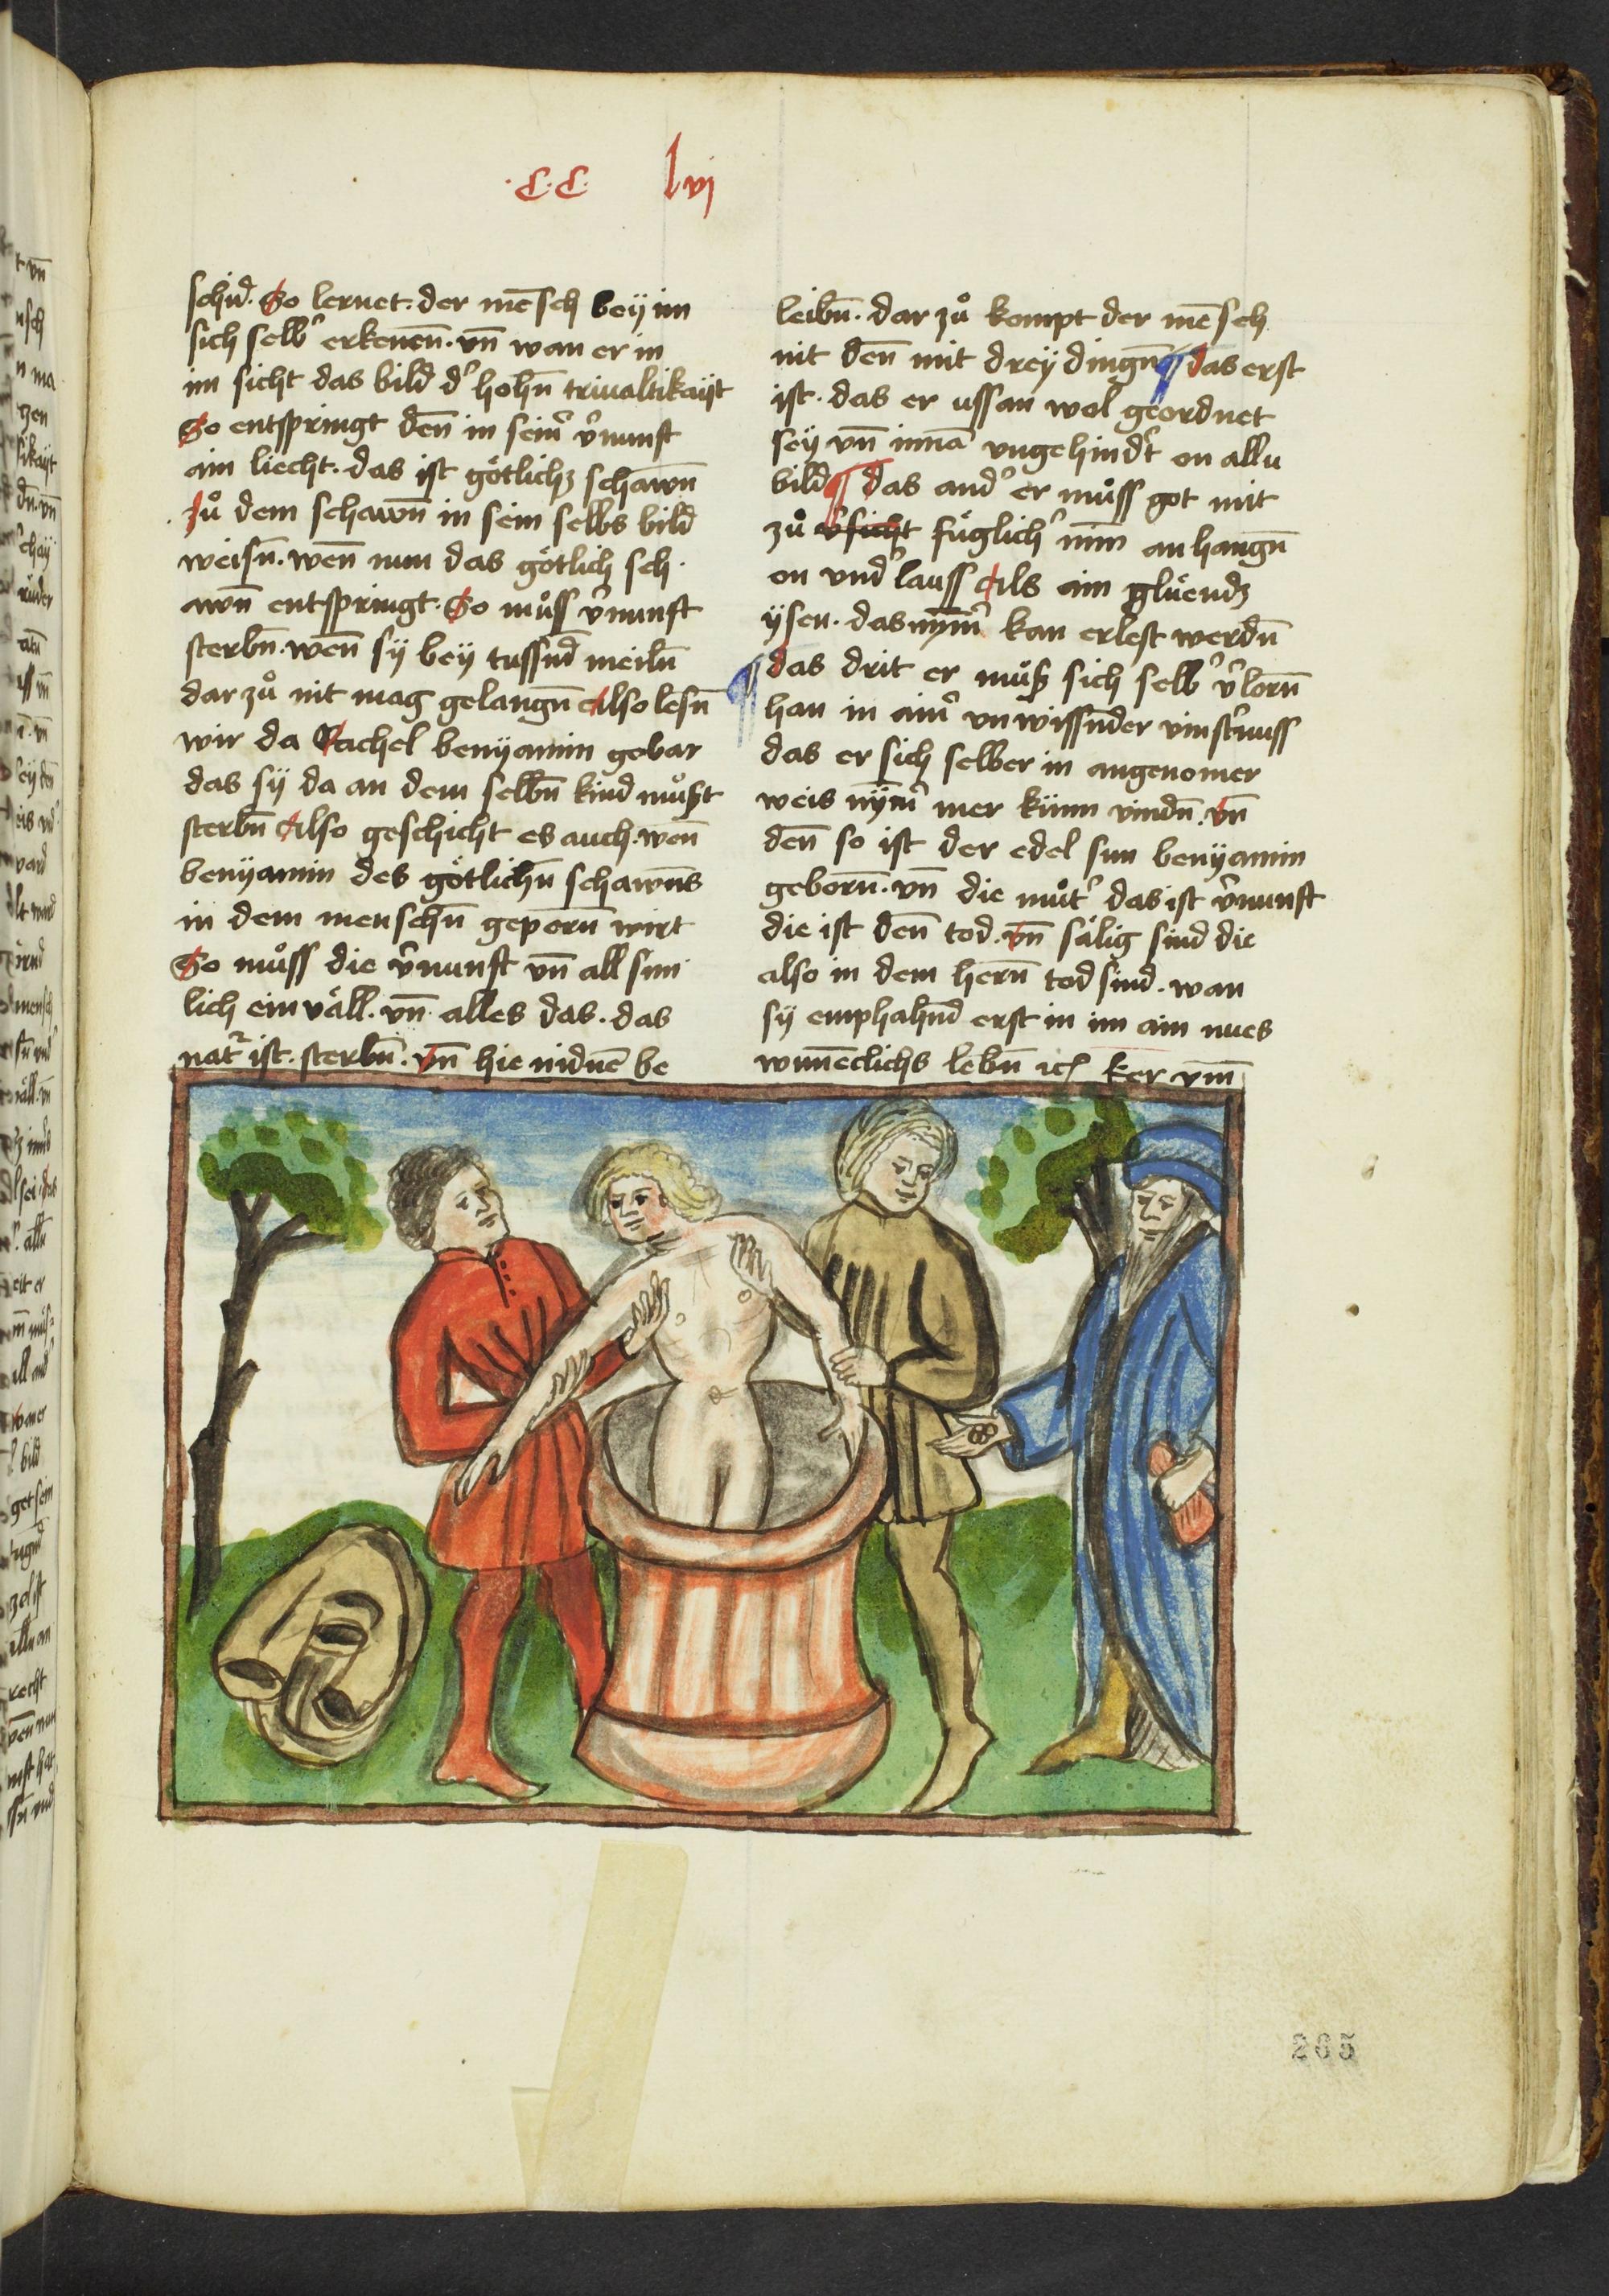 ·C·C· lvj
schid. So lernet. der mēsch beÿ im
sich selb' erkenen̄. vn̄ wan er in
im sicht das bild d' hohn̄ triualtikaÿt
So entspringt den̄ in seim' v'nunft
ain liecht. das ist götlichʒ schawn̄
Zů dem schawn̄ in sein selbs bild
weisn̄. wen̄ nun das götlich sch
awn̄ entspringt. So můss v'nunft
sterbn̄. wen̄ sÿ beÿ tussn̄d meiln̄
dar zů nit mag gelangn̄ Also lesn̄
wir da Rachel benÿamin gebar
das sÿ da an dem selbn̄ kind můßt
sterbn̄ Also geschicht es auch. wen̄
benÿamin des götlichn̄ schawn̄s
in dem menschn̄ geporn̄ wirt
So můss die v'nunft vn̄ all sin
lich ein väll. vn̄ alles das. das
nat' ist. sterbn̄. vn̄ hie nidnē be
leibn̄. dar zů kompt der mēsch
nit den̄ mit dreÿ dingn̄ ¶ das erst
ist. das er ussan wol geordnet
seÿ vn̄ innā vngehind't on alle
bild ¶ das and' er můss got mit
zů v'sicht füglich' min̄ an hangn̄
on vnd'lauss Als ain glüendʒ
ÿsen. das nÿm̄' kan erlest werdn̄
¶ das drit er můß sich selb' v'lorn̄
han in aim' vnwissn̄der vinst'nuss
das er sich selber in angenomer
weis nÿm̄' mer künn vindn̄. vn̄
den̄ so ist der edel sun benÿamin
geborn̄. vn̄ die můt' das ist v'nunft
die ist den̄ tod. vn̄ sälig sind die
also in dem hern̄ tod sind. wan
sÿ emphahn̄d erst in im ain nues
wunēclichs lebn̄ ꝛc ker vm̄
265